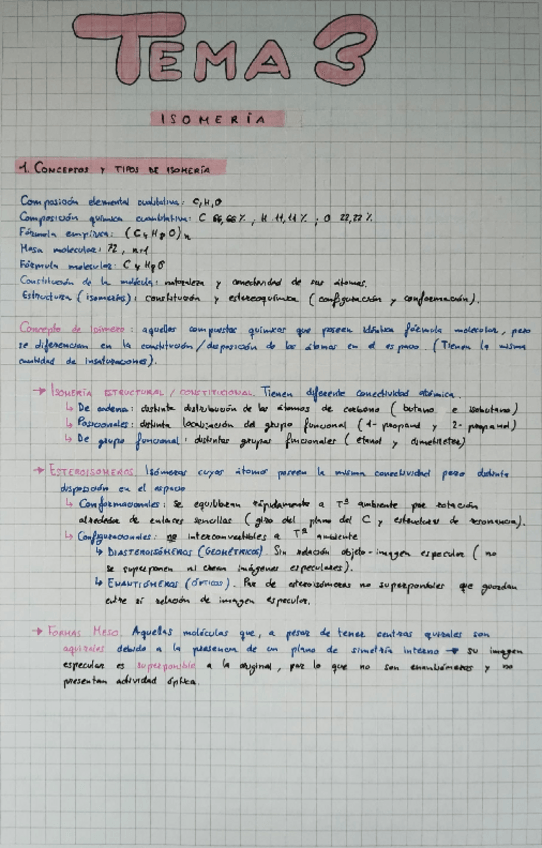 TEMA 3
ISOMERÍA
1. CONCEPTOS Y TIPOS DE ISOMERÍA
Composición elemental cualitativa: C, H, O
Composición química cuantitativa: C 66,66 %, H 11,11 %; O 22,22 %
Fórmula empírica: (C4H8O)n
Masa molecular: 72, n=1
Fórmula molecular: C4H8O
Constitución de la molécula: naturaleza y conectividad de sus átomos.
Estructura (isomerías): constitución y estereoquímica (configuración y conformación).
Concepto de isómero: aquellos compuestos químicos que poseen idéntica fórmula molecular, pero
se diferencian en la constitución/disposición de los átomos en el espacio. (Tienen la misma
cantidad de insaturaciones).
→ ISOMERÍA ESTRUCTURAL / CONSTITUCIONAL. Tienen diferente conectividad atómica.
↳ De cadena: distinta distribución de los átomos de carbono (butano e isobutano)
↳ Posicionales: distinta localización del grupo funcional (1-propanol y 2-propanol)
↳ De grupo funcional: distintos grupos funcionales (etanol y dimetiléter)
→ ESTEROISÓMEROS. Isómeros cuyos átomos poseen la misma conectividad pero distinta
disposición en el espacio
↳ Conformacionales: se equilibran rápidamente a Tª ambiente por rotación
alrededor de enlaces sencillos (giro del plano del C y estructuras de resonancia).
↳ Configuracionales: no interconvertibles a Tª ambiente
↳ DIASTEROISÓMEROS (GEOMÉTRICOS). Sin relación objeto-imagen especular (no
se superponen ni crean imágenes especulares).
↳ ENANTIÓMEROS (ÓPTICOS). Par de esteroisómeros no superponibles que guardan
entre sí relación de imagen especular.
→ FORMAS MESO. Aquellas moléculas que, a pesar de tener centros quirales son
aquirales debido a la presencia de un plano de simetría interno → su imagen
especular es superponible a la original, por lo que no son enantiómeros y no
presentan actividad óptica.